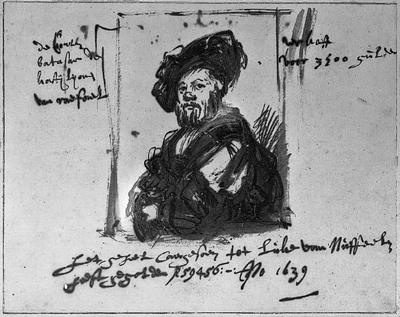 de Conte
batasar de
kastijlijone
van raefael
verkoft
voor 3500 gulden
het geheel Caergesoen tot Luke van Nuffeelen
heeft gegolden f59456:- Ano 1639